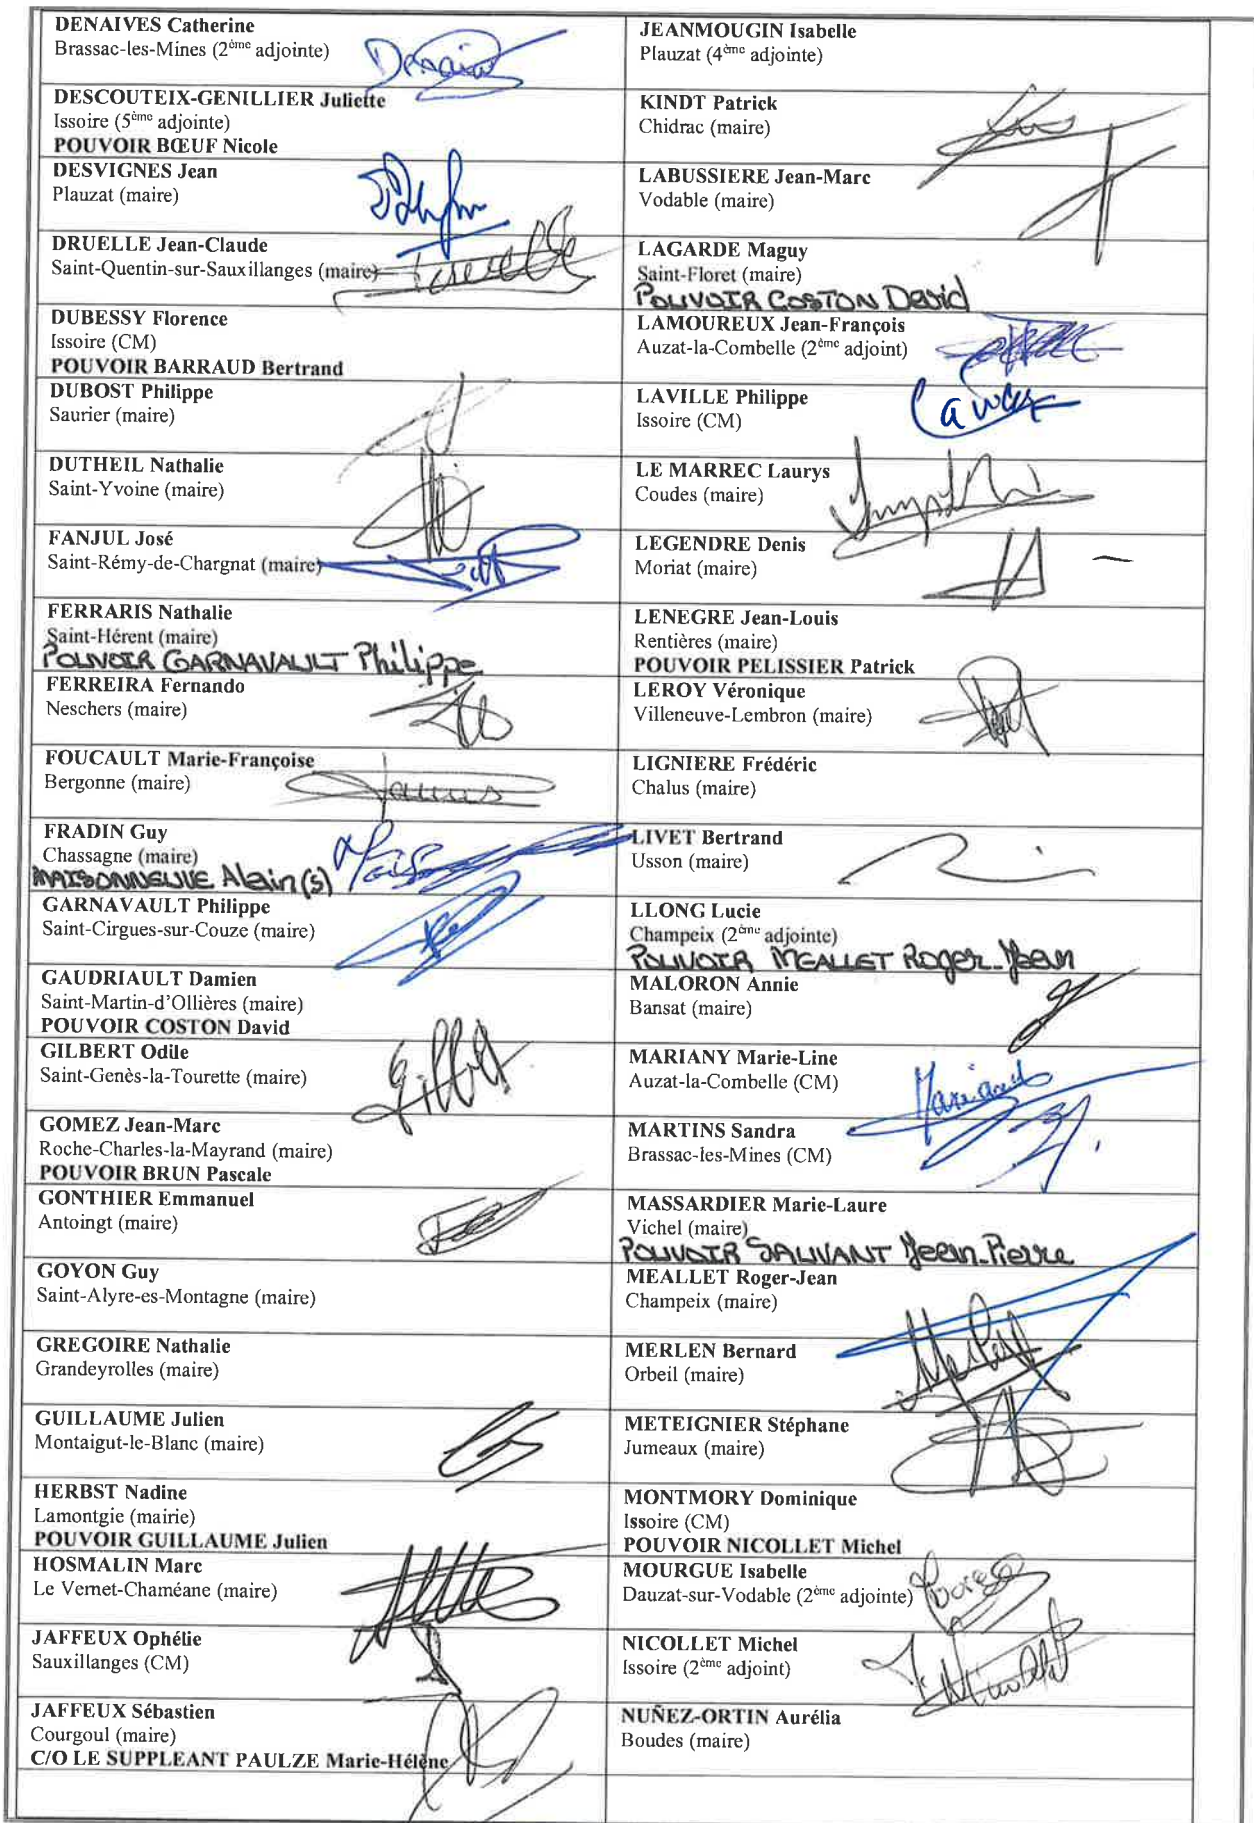 DENAIVES Catherine
Brassac-les-Mines (2ème adjointe)
DESCOUTEIX-GENILLIER Juliette
Issoire (5ème adjointe)
POUVOIR BŒUF Nicole
DESVIGNES Jean
Plauzat (maire)
DRUELLE Jean-Claude
Saint-Quentin-sur-Sauxillanges (maire)
DUBESSY Florence
Issoire (CM)
POUVOIR BARRAUD Bertrand
DUBOST Philippe
Saurier (maire)
DUTHEIL Nathalie
Saint-Yvoine (maire)
FANJUL José
Saint-Rémy-de-Chargnat (maire)
FERRARIS Nathalie
Saint-Hérent (maire)
POUVOIR GARNAVAULT Philippe
FERREIRA Fernando
Neschers (maire)
FOUCAULT Marie-Françoise
Bergonne (maire)
FRADIN Guy
Chassagne (maire)
MAISONNEUVE Alain (s)
GARNAVAULT Philippe
Saint-Cirgues-sur-Couze (maire)
GAUDRIAULT Damien
Saint-Martin-d'Ollières (maire)
POUVOIR COSTON David
GILBERT Odile
Saint-Genès-la-Tourette (maire)
GOMEZ Jean-Marc
Roche-Charles-la-Mayrand (maire)
POUVOIR BRUN Pascale
GONTHIER Emmanuel
Antoingt (maire)
GOYON Guy
Saint-Alyre-es-Montagne (maire)
GREGOIRE Nathalie
Grandeyrolles (maire)
GUILLAUME Julien
Montaigut-le-Blanc (maire)
HERBST Nadine
Lamontgie (mairie)
POUVOIR GUILLAUME Julien
HOSMALIN Marc
Le Vernet-Chaméane (maire)
JAFFEUX Ophélie
Sauxillanges (CM)
JAFFEUX Sébastien
Courgoul (maire)
C/O LE SUPPLEANT PAULZE Marie-Hélène
JEANMOUGIN Isabelle
Plauzat (4ème adjointe)
KINDT Patrick
Chidrac (maire)
LABUSSIERE Jean-Marc
Vodable (maire)
LAGARDE Maguy
Saint-Floret (maire)
POUVOIR COSTON David
LAMOUREUX Jean-François
Auzat-la-Combelle (2ème adjoint)
LAVILLE Philippe
Issoire (CM)
LE MARREC Laurys
Coudes (maire)
LEGENDRE Denis
Moriat (maire)
LENEGRE Jean-Louis
Rentières (maire)
POUVOIR PELISSIER Patrick
LEROY Véronique
Villeneuve-Lembron (maire)
LIGNIERE Frédéric
Chalus (maire)
LIVET Bertrand
Usson (maire)
LLONG Lucie
Champeix (2ème adjointe)
POUVOIR MEALLET Roger-Jean
MALORON Annie
Bansat (maire)
MARIANY Marie-Line
Auzat-la-Combelle (CM)
MARTINS Sandra
Brassac-les-Mines (CM)
MASSARDIER Marie-Laure
Vichel (maire)
POUVOIR SAUVANT Jean-Pierre
MEALLET Roger-Jean
Champeix (maire)
MERLEN Bernard
Orbeil (maire)
METEIGNIER Stéphane
Jumeaux (maire)
MONTMORY Dominique
Issoire (CM)
POUVOIR NICOLLET Michel
MOURGUE Isabelle
Dauzat-sur-Vodable (2ème adjointe)
NICOLLET Michel
Issoire (2ème adjoint)
NUÑEZ-ORTIN Aurélia
Boudes (maire)